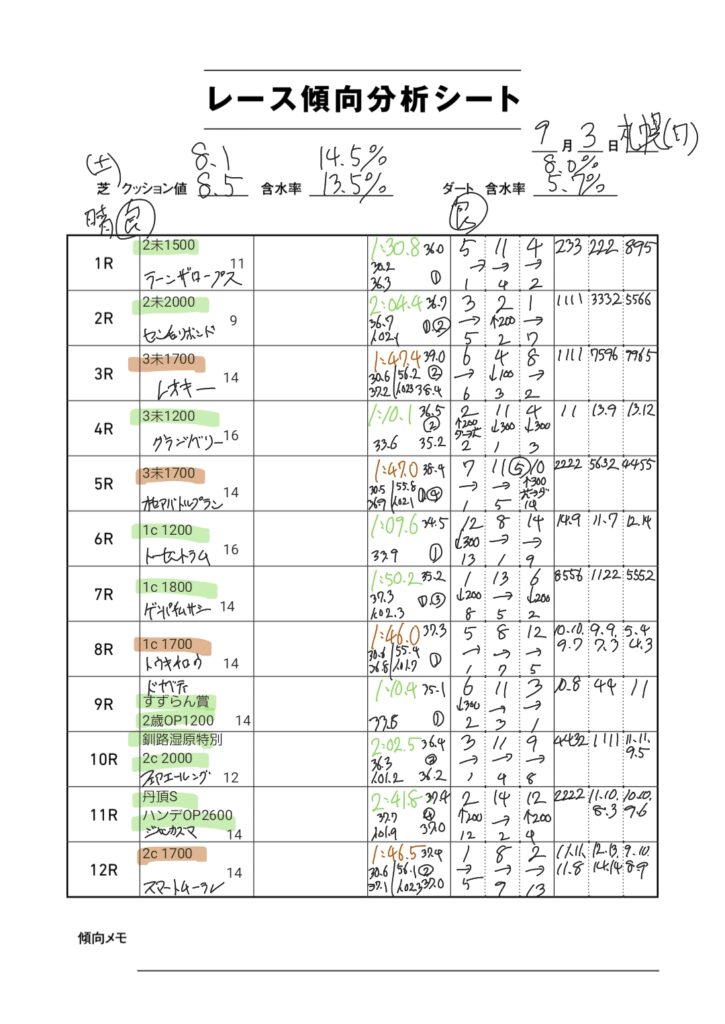 レース傾向分析シート
9月3日 札幌(日)
(土) 8.1 14.5% 8.0%
芝 クッション値 8.5 含水率 13.5% ダート 含水率 5.7%
晴 良 良
1R 2未1500 11 1:30.8 36.0 5 11 4 233 222 895
30.2 → → →
ラーンザロープス 36.3 ① 1 4 2
2R 2未2000 2:04.4 36.7 3 2 1 1111 3332 5566
9 36.7 ② → ↑200 →
センタリボンド 5 2 7
3R 3未1700 1:47.4 39.0 6 4 8 1111 7596 7965
14 30.6 56.2 ② → ↓100 →
レオキー 37.2 38.4 6 3 2
4R 3未1200 1:10.1 36.5 2 11 4 11 13.9 13.12
16 ② ↑200 ↓300 ↓300
グランベリー 33.6 35.2 2 1 3
5R 3未1700 1:47.0 38.4 7 11 ⑤ 10 2222 5632 4455
14 30.5 55.8 → → ↑300
オセアバトルプラン 1:02.1 1 5 14
6R 1c 1200 1:09.6 34.5 12 8 14 14.9 11.7 12.14
16 ↓300 → →
トーセントラム 33.9 ① 13 1 9
7R 1c 1800 1:50.2 35.2 1 13 6 8556 1122 5552
14 37.3 ↓200 → ↓200
ゲンパチムサシ 1:02.3 8 5 2
8R 1c 1700 1:46.0 37.3 5 8 12 10.10. 9.9. 5.4
14 30.6 55.4 → → → 9.7 7.3 4.3
トウキチロウ 36.8 1:01.7 ① 1 7 5
9R ドナベティ 1:10.4 35.1 6 11 3 10.8 44 11
すずらん賞 ↓300 → →
2歳OP1200 14 ① 2 3 1
10R 釧路湿原特別 2:02.5 36.4 3 11 9 4432 1111 11.11.
2c 2000 36.3 → → → 9.5
フェアエールング 12 1:01.2 36.2 1 9 8
11R 丹頂S 2:41.8 37.4 2 14 12 2222 11.10. 10.10.
ハンデOP2600 37.7 ④ ↑200 → ↑200 8.3 9.6
ジャンカズマ 14 1:01.9 37.0 12 2 4
12R 2c 1700 1:46.5 37.4 1 8 2 11.11. 12.13. 9.10.
14 30.6 56.1 ② → → → 11.8 14.14 8.9
スマートムーラン 37.1 1:02.3 37.0 5 9 13
傾向メモ